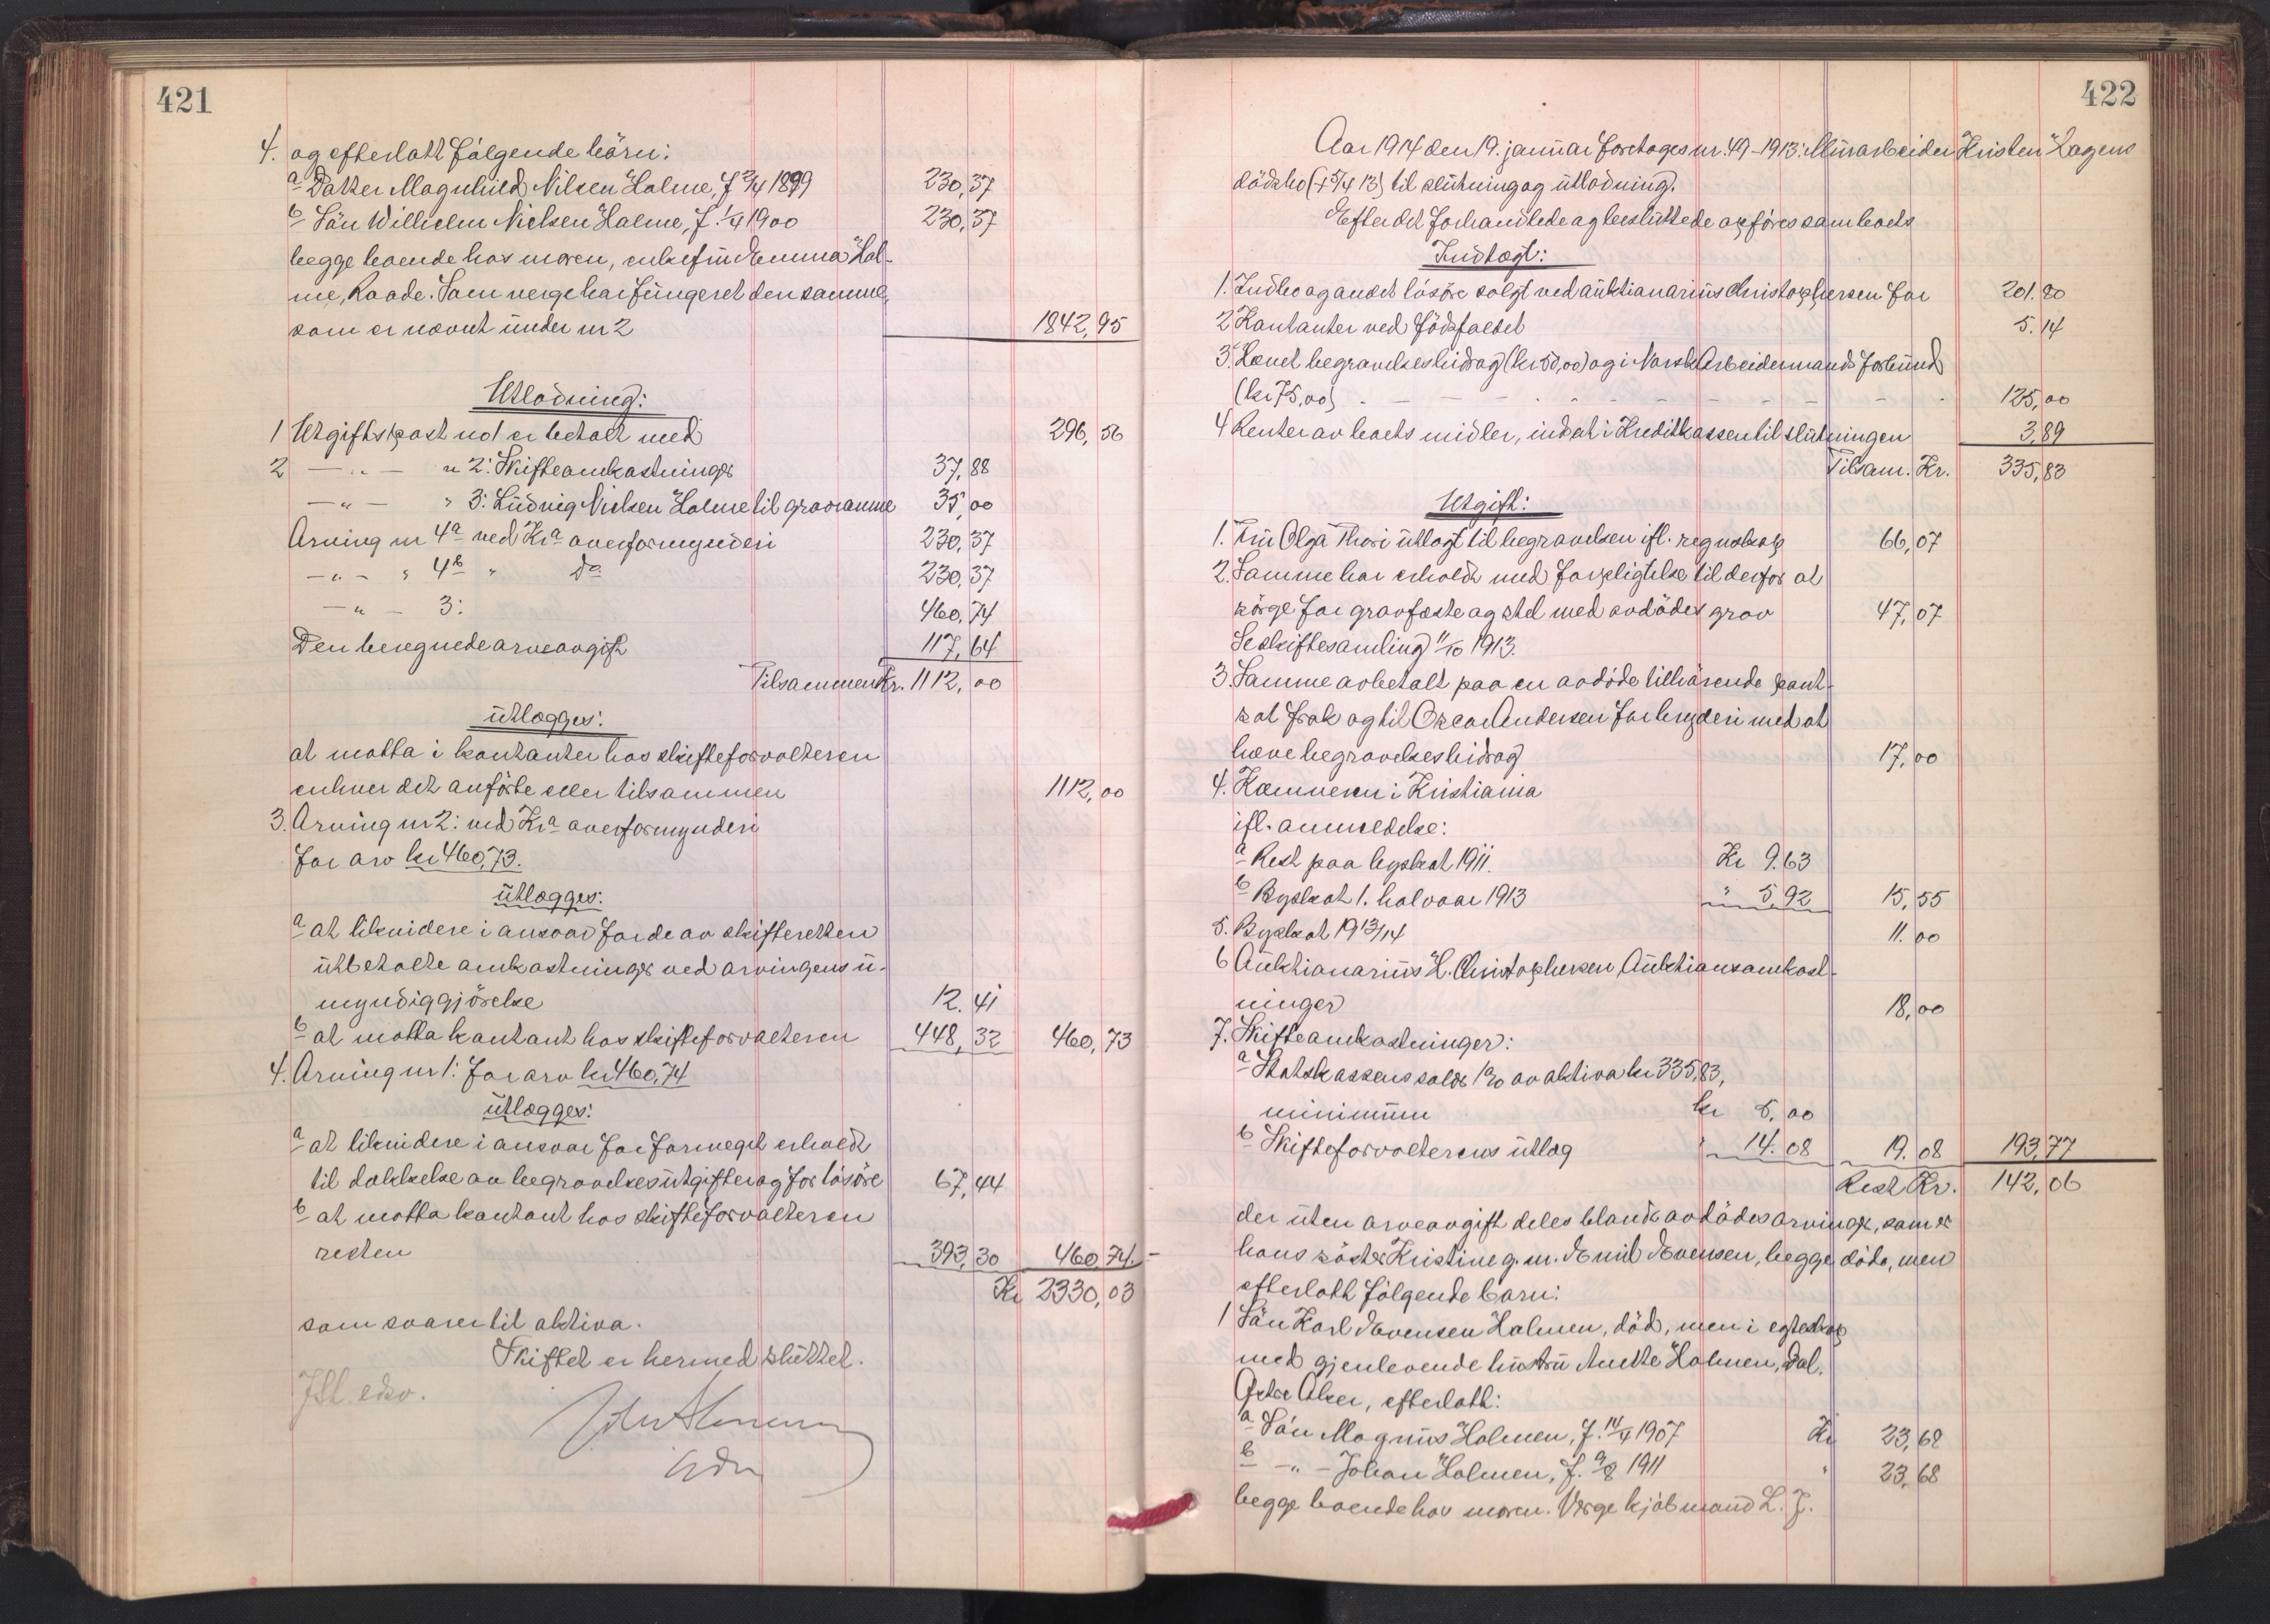 421
4. og efterlatt følgende børn:
a Datter Magnhild Nilsen Holme, f 2/4 1899 230,37
b Søn Wilhelm Nielsen Holme, f. 1/4 1900 230,37
begge boende hos moren, enkefru Emma Hol-
me, Raade. Som verge har fungeret den samme,
som er nævnt under nr 2 1842,95
Utlodning:
1 Utgiftspost no 1 er betalt med 296,56
2 — „ — „ 2: Skifteomkostninger 37,88
— „ — „ 3: Ludvig Nielsen Holme til gravramme 35,00
Arving nr 4a ved Kra overformynderi 230,37
— „ — „ 4b „ do 230,37
— „ — 3: 460,74
Den beregnede arveavgift 117,64
Tilsammen Kr. 1112,00
utlægges:
at motta i kontanter hos skifteforvalteren
enhver det anførte eller tilsammen 1112,00
3. Arving nr 2: ved Kra overformynderi
for arv kr 460,73.
utlægges:
a at likvidere i ansvar for de av skifteretten
utbetalte omkostninger ved arvingens u-
myndiggjørelse 12.41
b at motta kontant hos skifteforvalteren 448,32 460,73
4. Arving nr 1: for arv kr 460,74
utlægges:
a at likvidere i ansvar for forveget erholdt
til dækkelse av begravelsesutgifter og for løsøre 67,44
b at motta kontant hos skifteforvalteren
resten 393,30 460,74.-
Kr 2330,03
som svarer til aktiva.
Skiftet er hermed sluttet.
422
Aar 1914 den 19. januar foretoges nr. 49-1913: Murarbeider Kristen Hagens
dødsbo (+ 5/4 13) til slutning og utlodning.
Efter det forhandlede og besluttede opføres som boets
Indtægt:
1. Indbo og andet løsøre solgt ved auktionarius Christophersen for 201.80
2 Kontanter ved dødsfaldet 5.14
3. Hævet begravelsesbidrag (kr 50,00) og i Norsk Arbeidermands forbund
(kr 75,00) - - - - - - - - - - 125,00
4 Renter av boets midler, indsat i Kreditkassen til slutningen 3,89
Tilsam. Kr. 335,83
Utgift:
1. Fru Olga Thori utlagt til begravelsen ifl. regnskap 66,07
2. Samme har erholdt med forpligtelse til derfor at
sørge for gravfæste og stel med avdødes grav 47,07
Se skiftesamling 11/10 1913.
3. Samme avbetalt paa en avdøde tilhørende pant-
sat frak og til Oscar Andersen for bryderi med at
hæve begravelsesbidrag 17,00
4. Kæmneren i Kristiania
ifl. anmeldelse:
a Rest paa byskat 1911. Kr 9.63
b Byskat 1. halvaar 1913 „ 5,92 15,55
5. Byskat 1913/14 11.00
6 Auktionarius H. Christophersen, Auktionsomkost-
ninger 18,00
7. Skifteomkostninger:
a Statskassens salær 1% av aktiva kr 335,83,
minimum kr 5,00
b Skifteforvalterens utlæg „ 14.08 19.08 193,77
Rest Kr. 142,06
der uten arveavgift deles blandt avdødes arvinger, som er
hans søster Kristine g. m. Emil Evensen, begge døde, men
efterlatt følgende barn:
1 Søn Karl Evensen Holmen, død, men i egteskap
med gjenlevende hustru Anette Holmen, Dal,
Østre Aker, efterlatt:
a Søn Magnus Holmen, f. 14/4 1907 Kr 23,68
b — „ — Johan Holmen, f. 9/8 1911 „ 23,68
begge boende hos moren. Verge kjøbmand L. J.